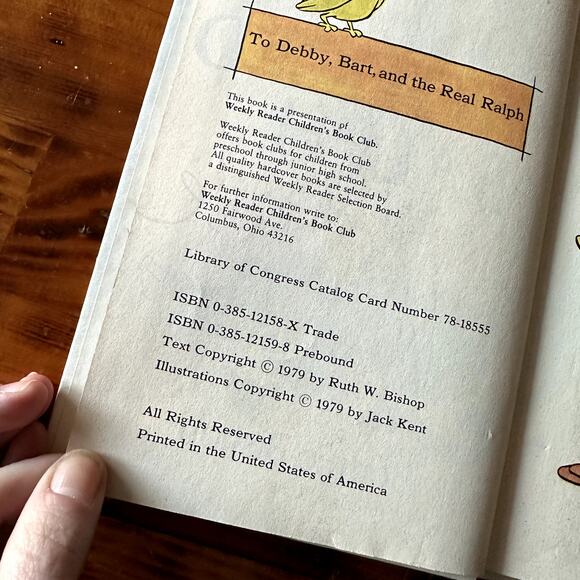 To Debby, Bart, and the Real Ralph
This book is a presentation of
Weekly Reader Children's Book Club.
Weekly Reader Children's Book Club
offers book clubs for children from
preschool through junior high school.
All quality hardcover books are selected by
a distinguished Weekly Reader Selection Board.
For further information write to:
Weekly Reader Children's Book Club
1250 Fairwood Ave.
Columbus, Ohio 43216
Library of Congress Catalog Card Number 78-18555
ISBN 0-385-12158-X Trade
ISBN 0-385-12159-8 Prebound
Text Copyright © 1979 by Ruth W. Bishop
Illustrations Copyright © 1979 by Jack Kent
All Rights Reserved
Printed in the United States of America